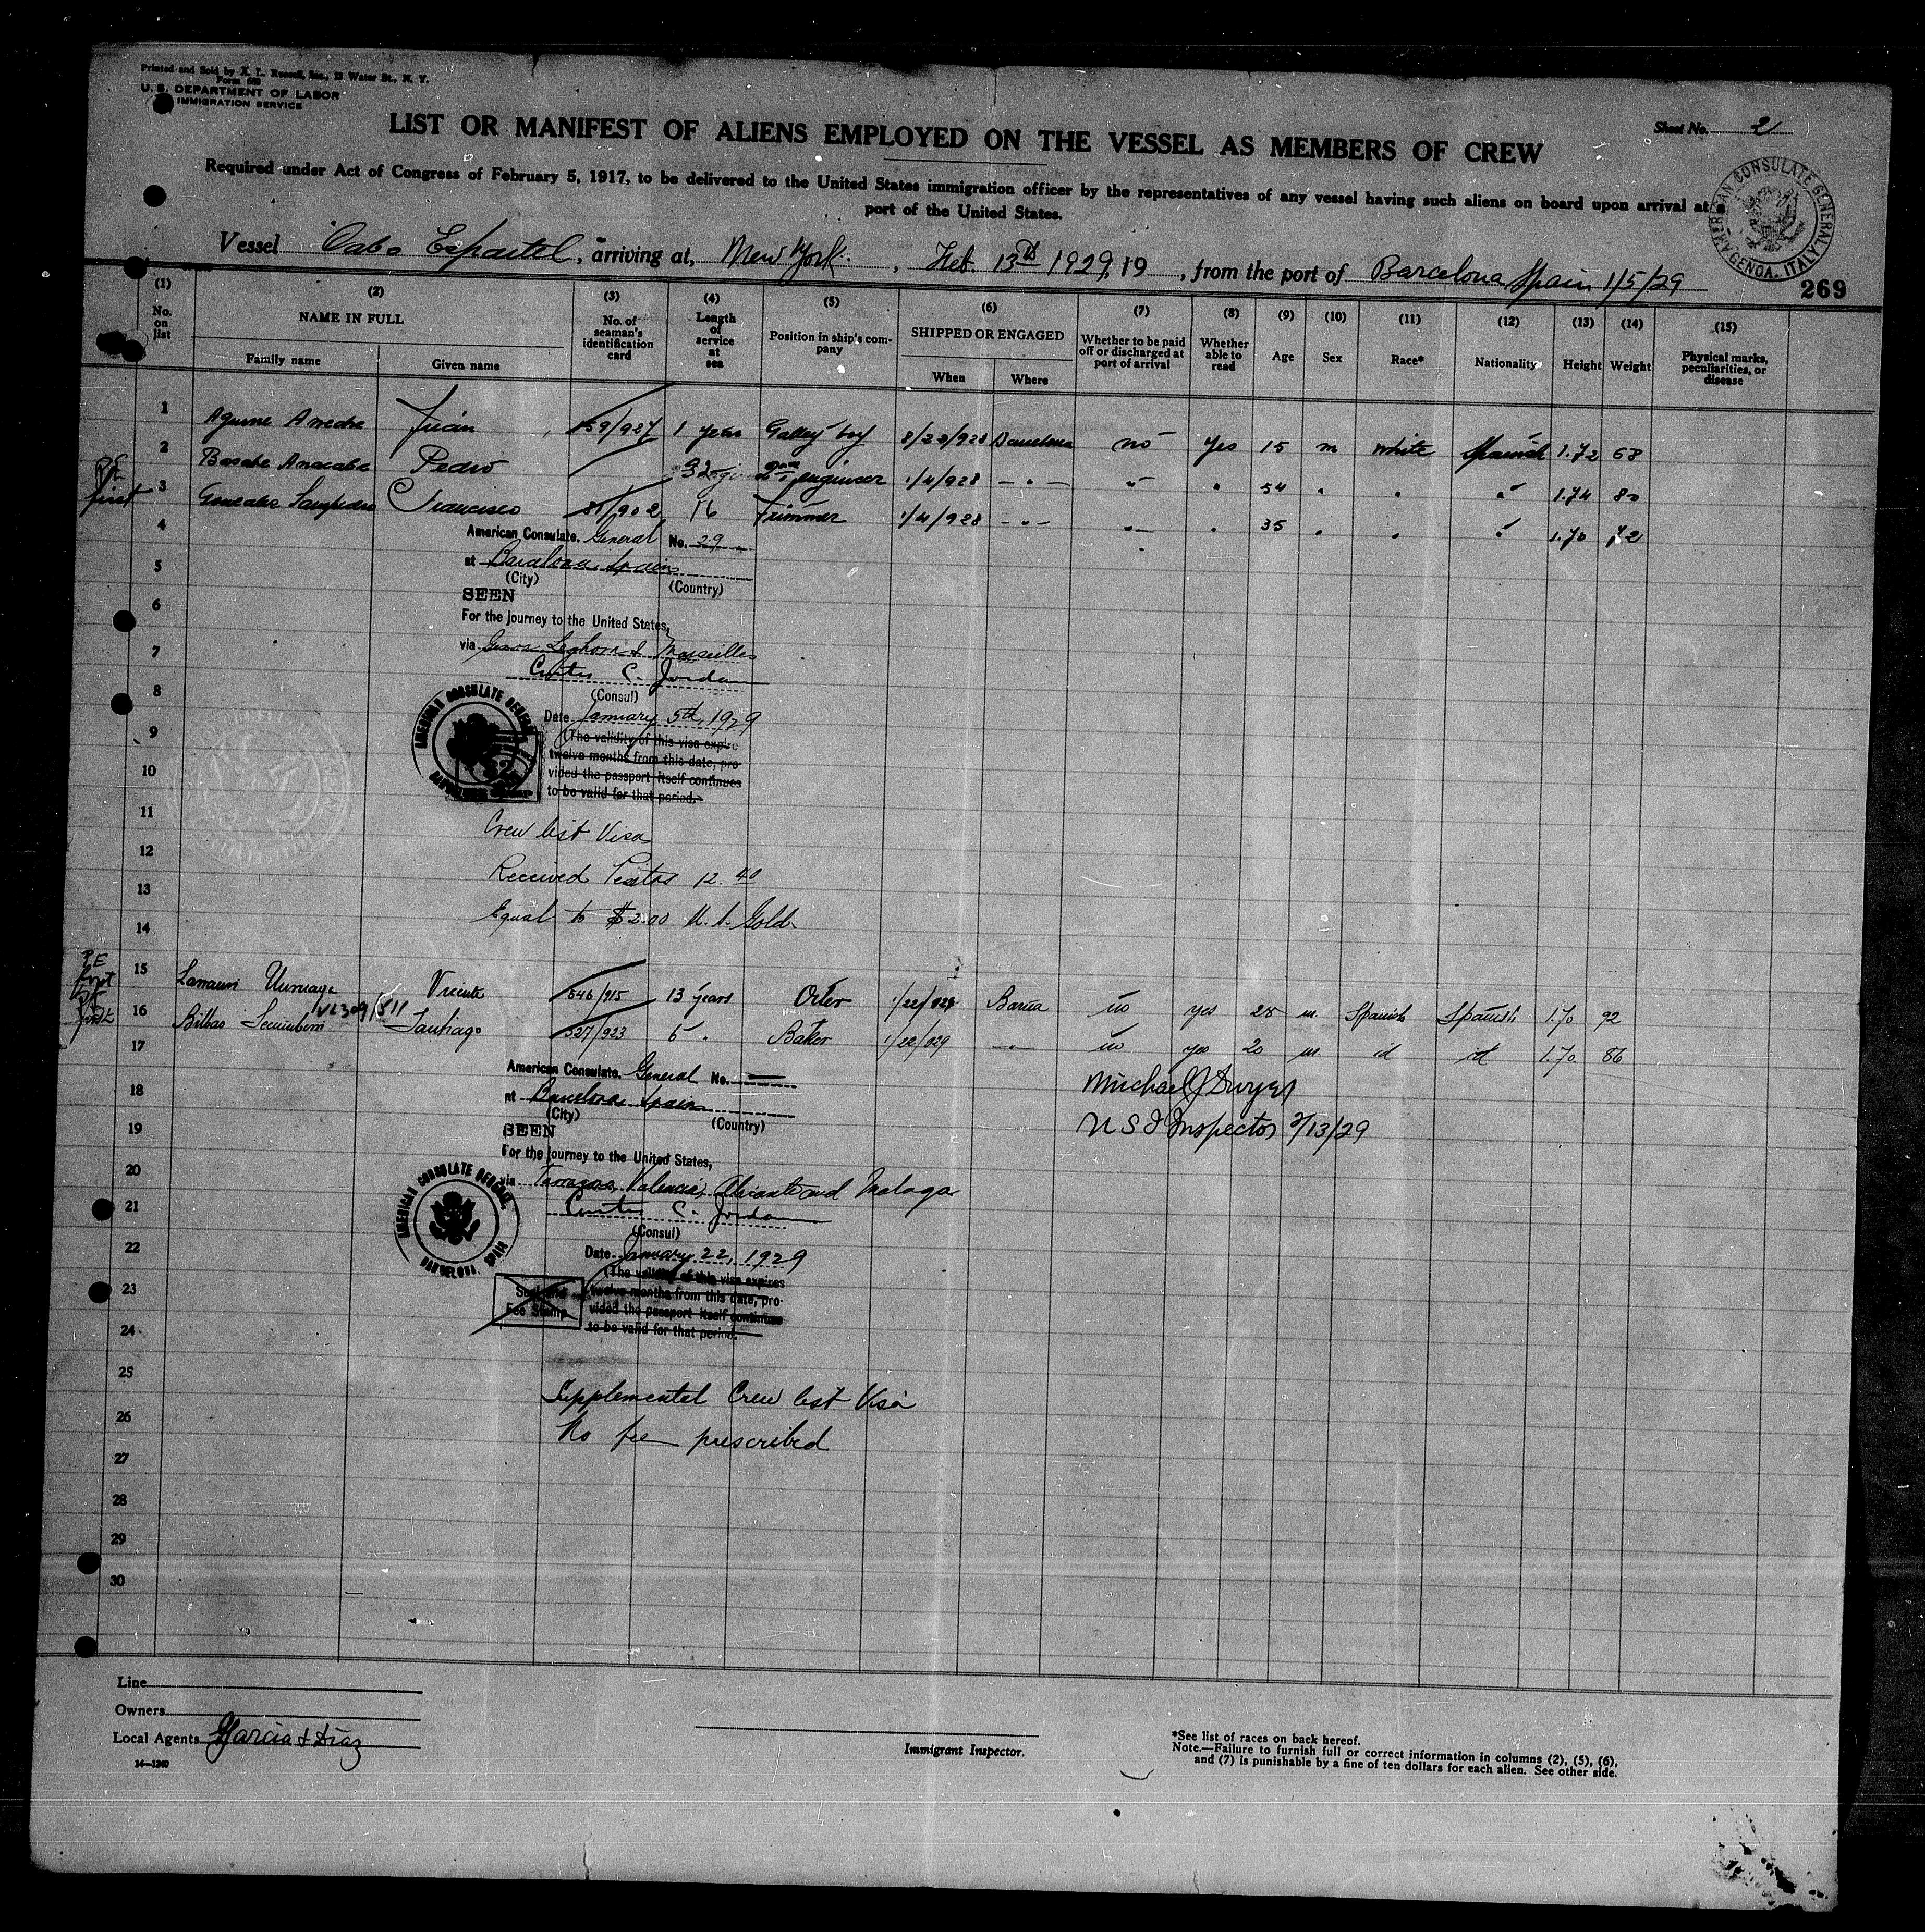 Printed and Sold by A. L. Russell, Inc., 12 Water St., N. Y.
Form 680
U. S. DEPARTMENT OF LABOR
IMMIGRATION SERVICE
Sheet No. 2
LIST OR MANIFEST OF ALIENS EMPLOYED ON THE VESSEL AS MEMBERS OF CREW
Required under Act of Congress of February 5, 1917, to be delivered to the United States immigration officer by the representatives of any vessel having such aliens on board upon arrival at
port of the United States.
AMERICAN CONSULATE GENERAL GENOA, ITALY
Vessel Cabo Espartel, arriving at, New York, Feb. 13th 1929, 19, from the port of Barcelona Spain 1/5/29
269
(1) (2) (3) (4) (5) (6) (7) (8) (9) (10) (11) (12) (13) (14) (15)
No. on list NAME IN FULL Family name Given name No. of seaman's identification card Length of service at sea Position in ship's company SHIPPED OR ENGAGED When Where Whether to be paid off or discharged at port of arrival Whether able to read Age Sex Race* Nationality Height Weight Physical marks, peculiarities, or disease
1 Juan 159/927 1 year Galley boy 8/22/928 Barcelona no Yes 15 m White Spanish 1.72 68
2 Pedro 32 2nd engineer 1/4/928 - " - " " 54 " " " 1.74 80
first
3 Francisco 81/902 16 Trimmer 1/4/928 - " - " " 35 " " " 1.70 72
4
American Consulate General No. 29
5
at Barcelona, Spain
(City) (Country)
SEEN
6
For the journey to the United States,
7
via Genoa Leghorn & Marseilles
Curtis C. Jordan
8
(Consul)
Date January 5th, 1929
AMERICAN CONSULATE GENERAL
9
(The validity of this visa expires
twelve months from this date, pro-
10
vided the passport itself continues
to be valid for that period.
11
Crew list Visa
12
Received Pesetas 12.40
13
Equal to $2.00 U.S. Gold
14
P.E.
first
15 Vicente 546/915 13 years Oiler 1/22/929 Barna no yes 28 m. Spanish Spanish 1.70 92
16 Bilbao Santiago 327/923 5 " Baker 1/22/929 - " - no yes 20 m id id 1.70 86
17
American Consulate General No.
Michael J Dwyer
18
at Barcelona Spain
(City) (Country)
U S I Inspector 2/13/29
19
SEEN
For the journey to the United States,
20
via Tarragona, Valencia, Alicante and Malaga
21
Curtis C. Jordan
AMERICAN CONSULATE GENERAL BARCELONA, SPAIN
(Consul)
22
Date January 22, 1929
(The validity of this visa expires
23
twelve months from this date, pro-
Fee Stamp
vided the passport itself continues
24
to be valid for that period.
25
Supplemental Crew list Visa
26
No fee prescribed
27
28
29
30
Line
Owners
Local Agents Garcia & Diaz
14—1240
Immigrant Inspector.
*See list of races on back hereof.
Note.—Failure to furnish full or correct information in columns (2), (5), (6),
and (7) is punishable by a fine of ten dollars for each alien. See other side.